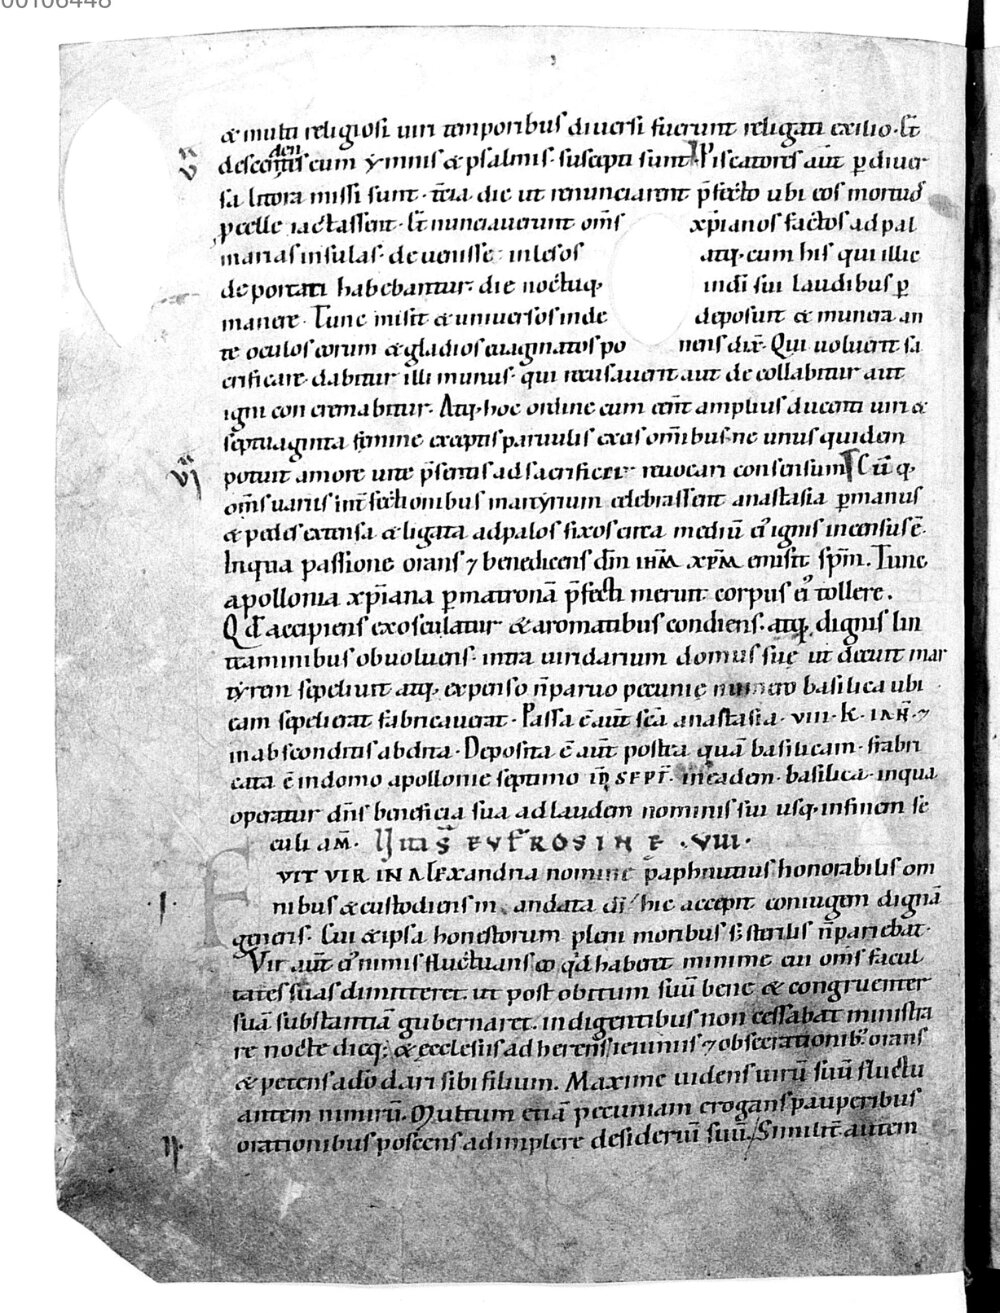 00106448
& multi religiosi uiri temporibus diuersi fuerunt religati exilio. Et
den
v descentis cum ymnis & psalmis. suscepti sunt. Piscatores aut̄ p̱ diuer
sa littora missi sunt. t̄cia die ut renunciarent p̄fecto ubi eos mortuos
pcelle iactassent. Et nunciauerunt om̄s xp̄ianos factos ad pal
marias insulas. deuenisse. inlesos atq. cum his qui illic
deportati habebantur. die noctuq. in dī sui laudibus p̱
manere. Tunc misit & uniuersos inde deposuit & munera an
te oculos eorum & gladios euaginatos ponens dix̄. Qui uoluerit sa
crificare. dabitur illi munus. qui recusauerit aut decollabitur aut
igni concremabitur. Atq. hoc ordine cum eēnt amplius ducenti uiri &
septuaginta femine exceptis paruulis ex his omībus. ne unus quidem
vi potuit amore uite p̄sentis ad sacrificer revocari consensum. Cū q.
om̄s variis int̄fectionibus martyrium celebrassent anastasia p̱ manus
& pedes extensa & ligata ad palos fixos circa mediū ei' ignis incensus ē.
In qua passione orans 7 benedicens dm̄ IHM̄ XPM̄ emisit spm̄. Tunc
apollonia xp̄iana p̱ matronā p̄fecti meruit corpus ei' tollere.
Qd̄ accipiens exosculatur & aromatibus condiens. atq. dignis lin
teaminibus obuoluens. intra uiridarium domus suę ut decuit mar
tyrem sepeliuit atq. expenso n̄ paruo pecunie numero basilica ubi
eam sepelierat fabricauerat. Passa ē aut̄ sc̄a anastasia. viii. K. IAN̄. 7
in absconditis abdita. Deposita ē aut̄ postea quā basilicam. fabri
cata ē in domo apollonie septimo ID̄ SEPT̄. in eadem. basilica. in qua
operatur dn̄s beneficia sua ad laudem nominis sui usq. in finem sē
culi AM̄. Vita S̄ EVFROSINE. VIII.
FVIT VIR IN Alexandria nomine paphnutius honorabilis om
.I. nibus & custodiens mandata dī. hic accepit coniugem dignā
generis. Cui & ipsa honestorum pleni moribus s; sterilis n̄ pariebat.
Vir aut̄ ei' nimis fluctuans eo qd̄ haberet minime cui om̄s facul
tates suas dimitteret. ut post obitum suū bene & congruenter
suā substantiā gubernaret. indigentibus non cessabat ministra
re nocte dieq; & ecclesiis adherens ieiuniis 7 obsecrationib; orans
& petens a dō dari sibi filium. Maxime uidens uirū suū fluctu
antem nimirū. Multum etiā pecuniam erogans pauperibus
II. orationibus poscens adimplere desideriū suū. Similit̄ autem